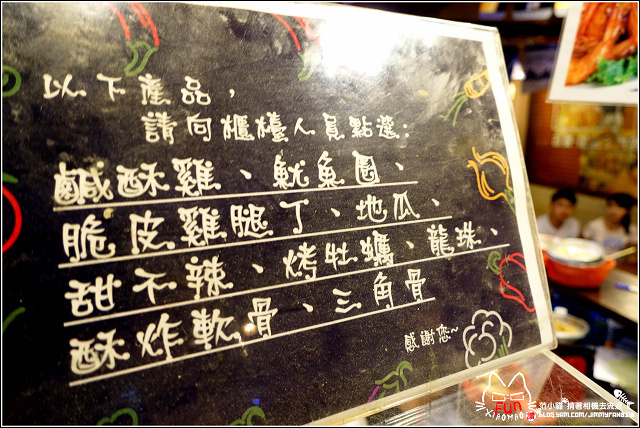 以下產品，
請向櫃檯人員點選：
鹹酥雞、魷魚圈、
脆皮雞腿丁、地瓜、
甜不辣、烤牡蠣、龍珠、
酥炸軟骨、三角骨
感謝您~
FUN
XIAOMAOFUN